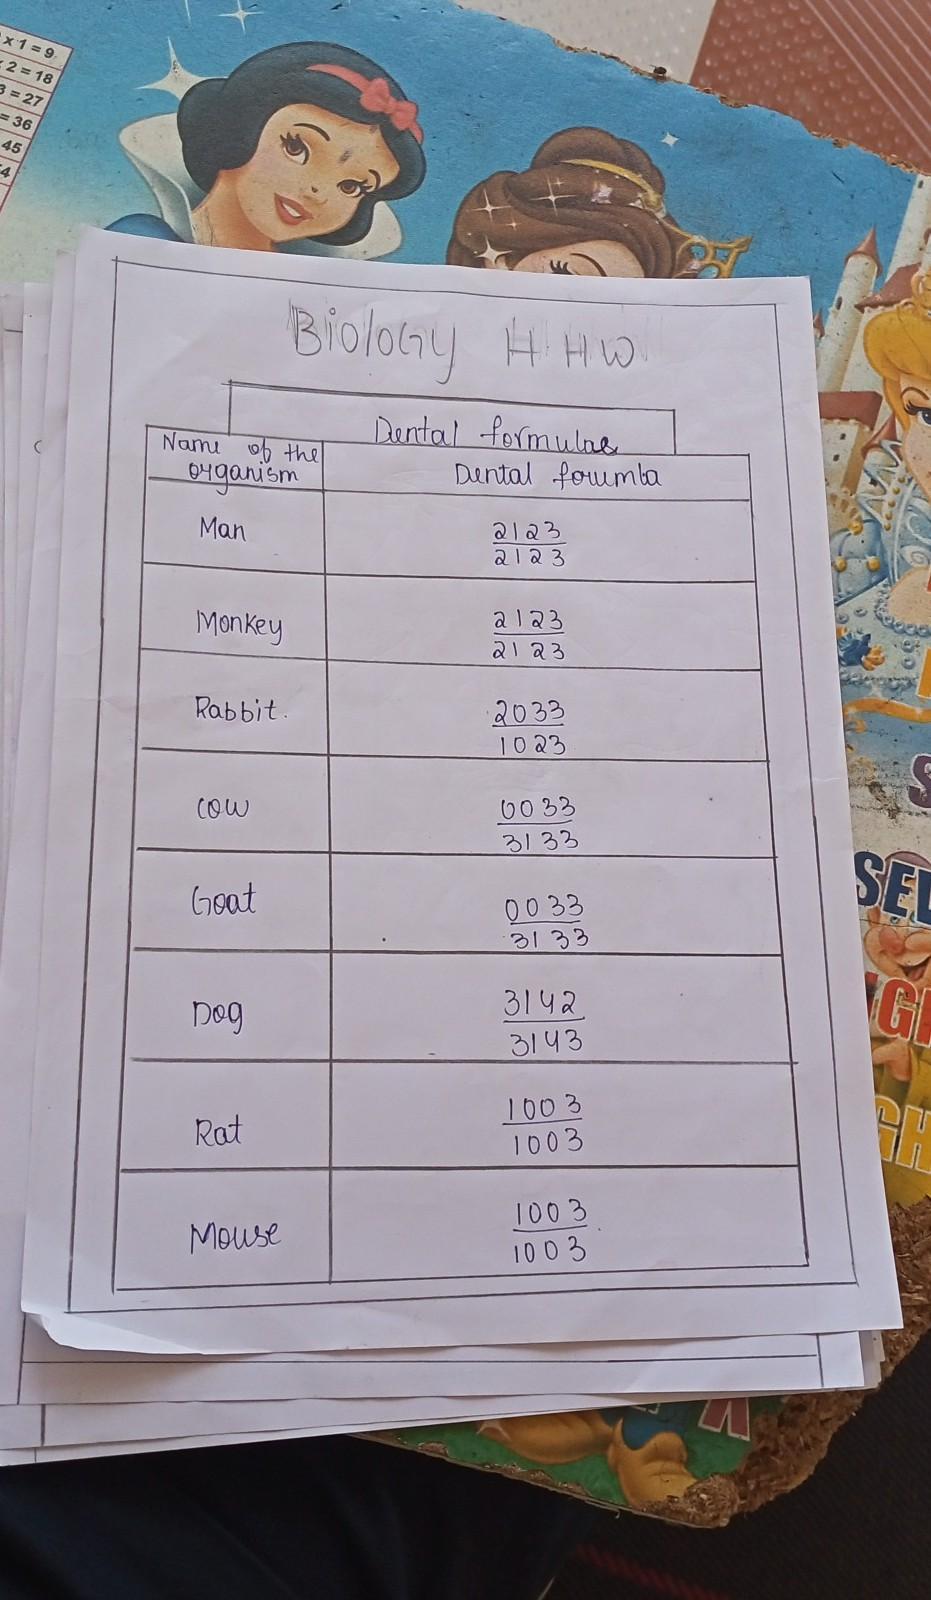 x 1 = 9
x 2 = 18
3 = 27
= 36
45
Biology H HW
Dental formulae
Name of the
organism
Dental forumla
Man
2123
2123
Monkey
2123
2123
Rabbit.
2033
1023
Cow
0033
3133
Goat
0033
3133
Dog
3142
3143
Rat
1003
1003
Mouse
1003
1003